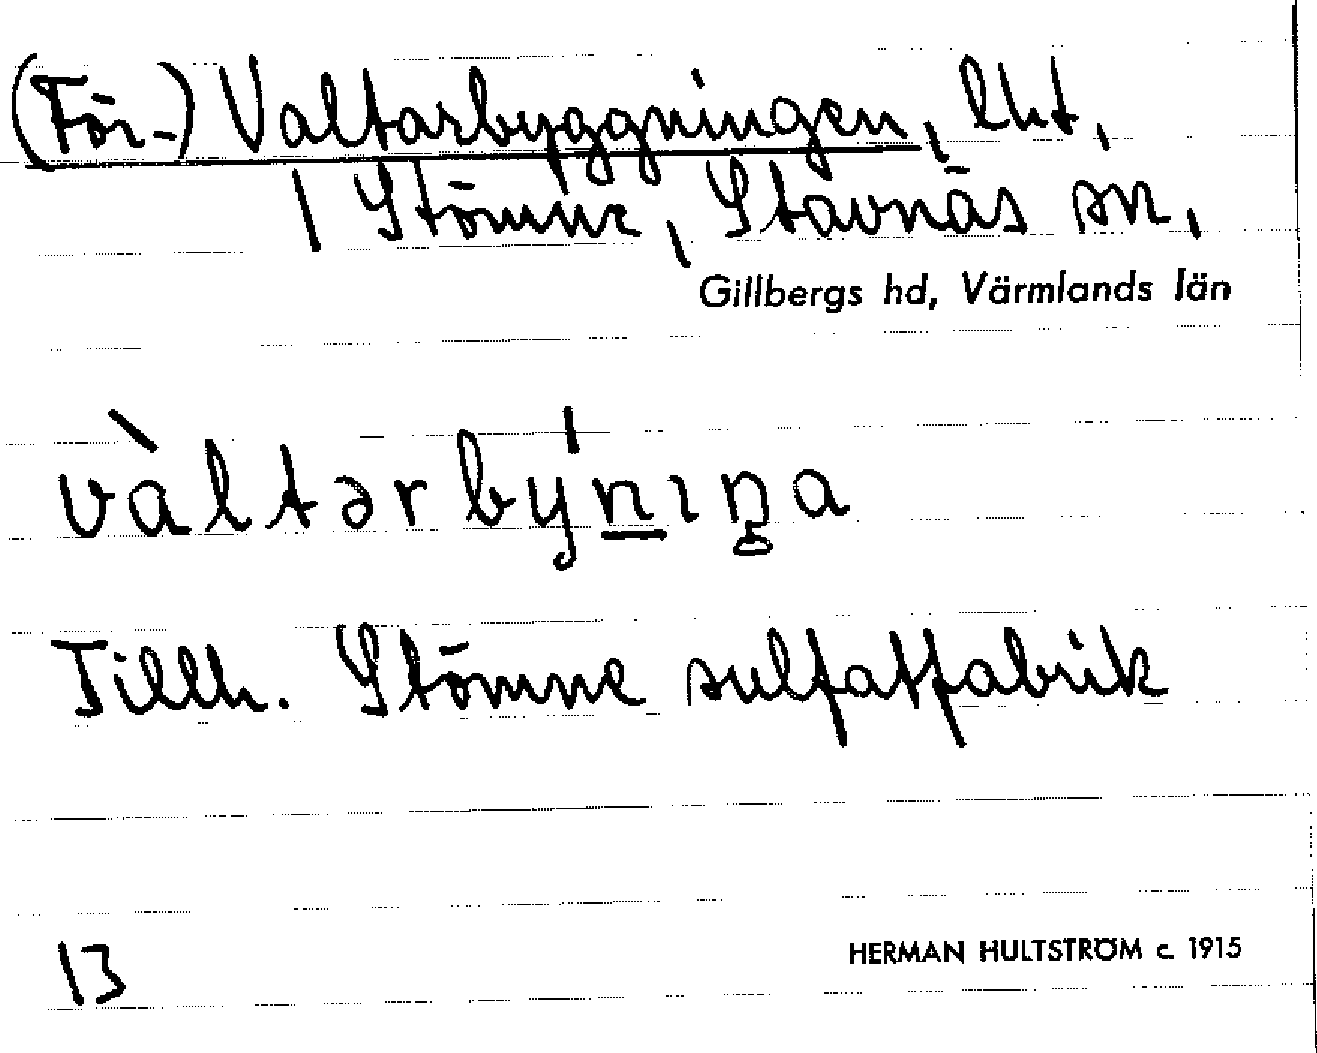 (För-) Valtarbyggningen, lht,
| Stömne, Stavnäs sn,
Gillbergs hd, Värmlands län
vàltərbýnıŋa
Tillh. Stömne sulfatfabrik
13
HERMAN HULTSTRÖM c. 1915